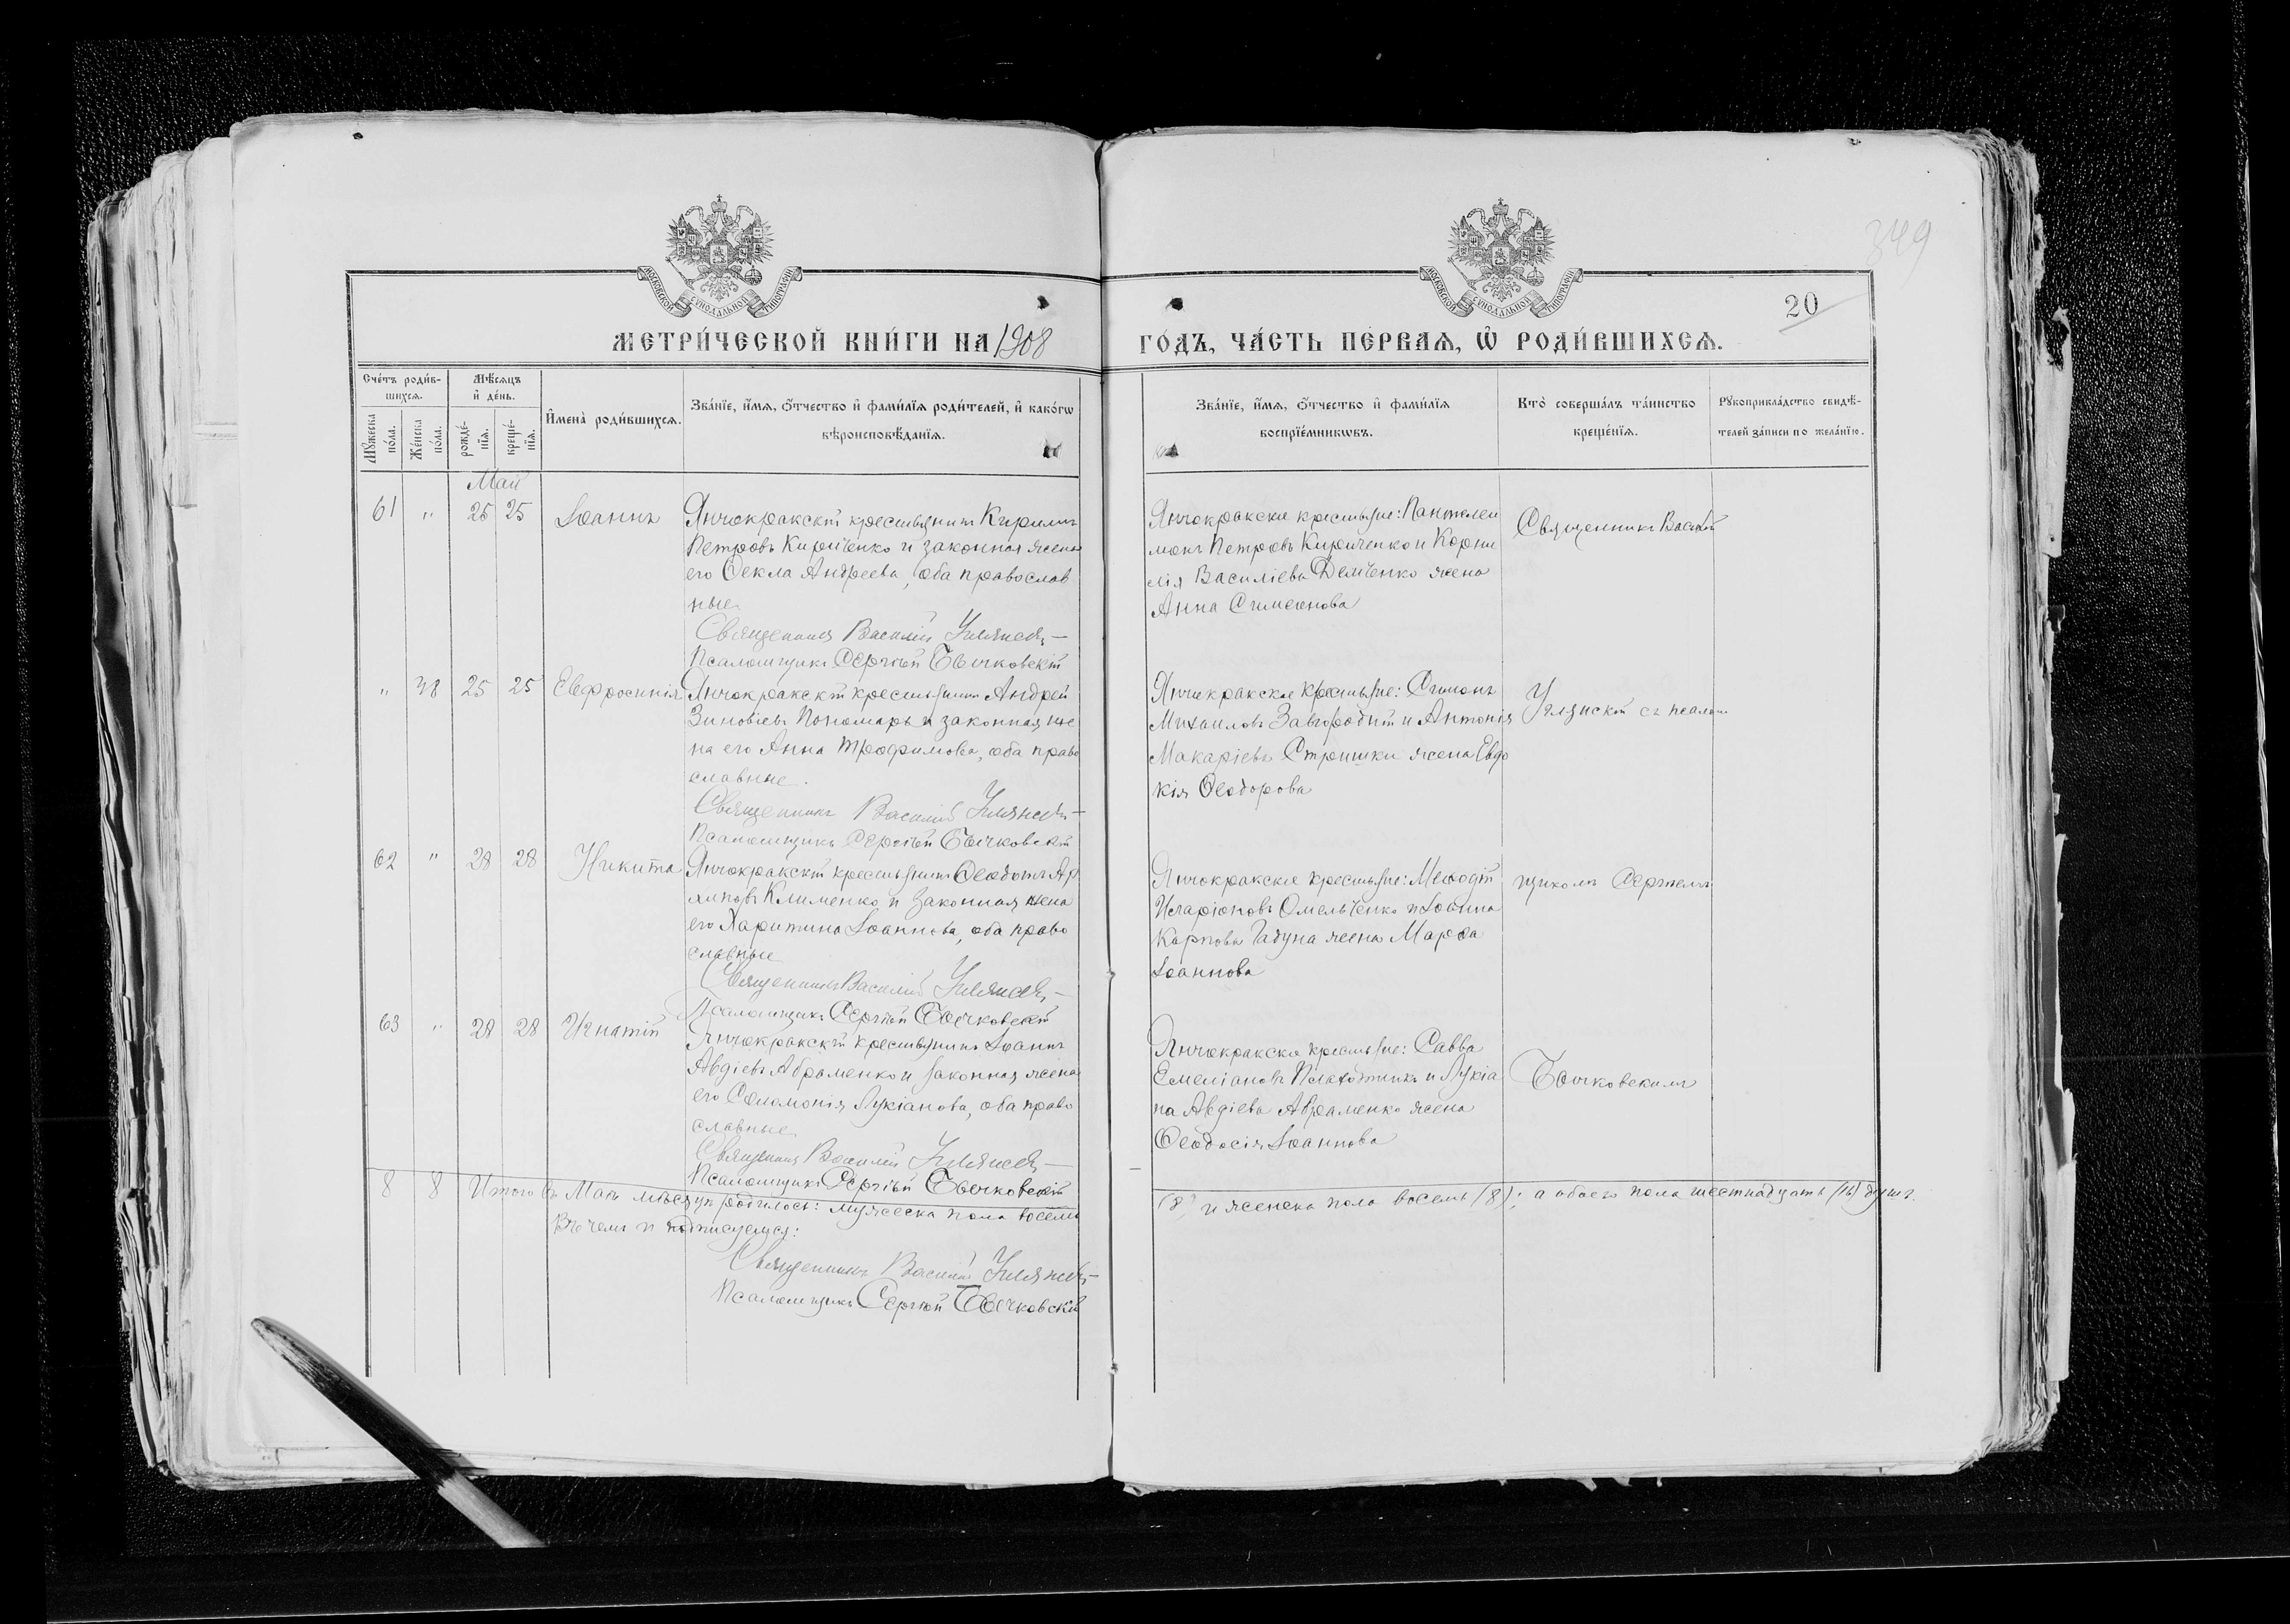 349
20
МОСКОВСКОЙ СѴНОДАЛЬНОЙ ТИПОГРАФІИ
МОСКОВСКОЙ СѴНОДАЛЬНОЙ ТИПОГРАФІИ
МЕТРИ́ЧЕСКОЙ КНИ́ГИ НА 1908
ГО́ДЪ, ЧА́СТЬ ПЕ́РВАѦ, Ѡ҆ РОДИ́ВШИХСѦ.
Сче́тъ роди́в-
шихсѧ.
Мꙋ́жеска по́ла.
Же́нска по́ла.
Мѣ́сѧцъ
и҆ де́нь.
рожде́-
нїѧ.
креще́-
нїѧ.
И҆мена̀ роди́вшихсѧ.
Зва́нїе, и҆́мѧ, ѻ҆́тчество и҆ фами́лїѧ роди́телей, и҆ како́гѡ
вѣроисповѣ́данїѧ.
Зва́нїе, и҆́мѧ, ѻ҆́тчество и҆ фами́лїѧ
воспрїе́мникѡвъ.
Кто̀ соверша́лъ та́инство
креще́нїѧ.
Рꙋкоприкла́дство свидѣ́-
телей за́писи по жела́нїю.
Май
61 " 25 25 Іоаннъ
Янчокракскій крестьянинъ Кириллъ
Петровъ Кириченко и законная жена
его Ѳекла Андреева, оба православ
ные.
Священникъ Василій
Псаломщикъ Сергѣй Бычковскій
Янчокракскіе крестьяне: Пантелеи
монъ Петровъ Кириченко и Корни
лія Василіева Демченко жена
Анна Симеонова
Священникъ Василій
" 38 25 25 Евфросинія
Янчокракскій крестьянинъ Андрей
Зиновіевъ Пономарь и законная же
на его Анна Трофимова, оба право
славные.
Священникъ Василій
Псаломщикъ Сергѣй Бычковскій
Янчокракскіе крестьяне: Симонъ
Михаиловъ Завгородній и Антонія
Макаріева Стришки жена Евдо
кія Ѳеодорова
съ псалом
62 " 28 28 Никита
Янчокракскій крестьянинъ Ѳеодотъ Ар
хиповъ Клименко и законная жена
его Харитина Іоаннова, оба право
славные
Священникъ Василій
Псаломщикъ Сергѣй Бычковскій
Янчокракскіе крестьяне: Меѳодій
Иларіоновъ Омельченко и Іоанна
Карпова Гадуна жена Марѳа
Іоаннова
щикомъ Сергѣемъ
63 " 28 28 Игнатій
Янчокракскій крестьянинъ Іоаннъ
Авдіевъ Авраменко и законная жена
его Соломонія Лукіанова, оба право
славные
Священникъ Василій
Псаломщикъ Сергѣй Бычковскій
Янчокракскіе крестьяне: Савва
Емеліановъ и Лукіа
на Авдіева Авраменко жена
Ѳеодосія Іоаннова
Бычковскимъ
8 8 Итого въ Маѣ мѣсяцѣ родилось: мужеска пола восемь
(8) и женска пола восемь (8); а обоего пола шестнадцать (16) душъ.
Въ чемъ и подписуемся:
Священникъ Василій
Псаломщикъ Сергѣй Бычковскій